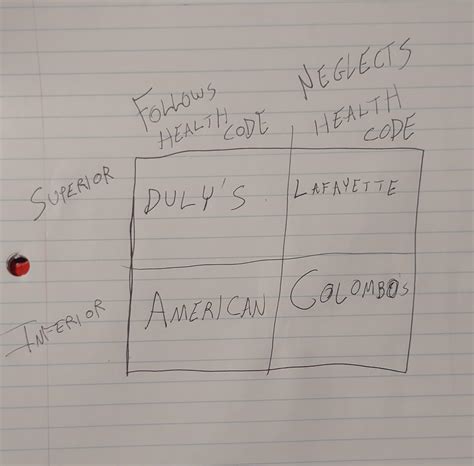 FOLLOWS
HEALTH CODE
NEGLECTS
HEALTH
CODE
SUPERIOR
DULY'S
LAFAYETTE
INFERIOR
AMERICAN
COLOMBO'S